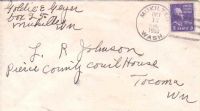 Goldie E Geyer
Box 25
Mukilteo
Wn
MUKILTEO
OCT
WASH.
L. R. Johnson
Pierce County Court House
Tacoma
Wn